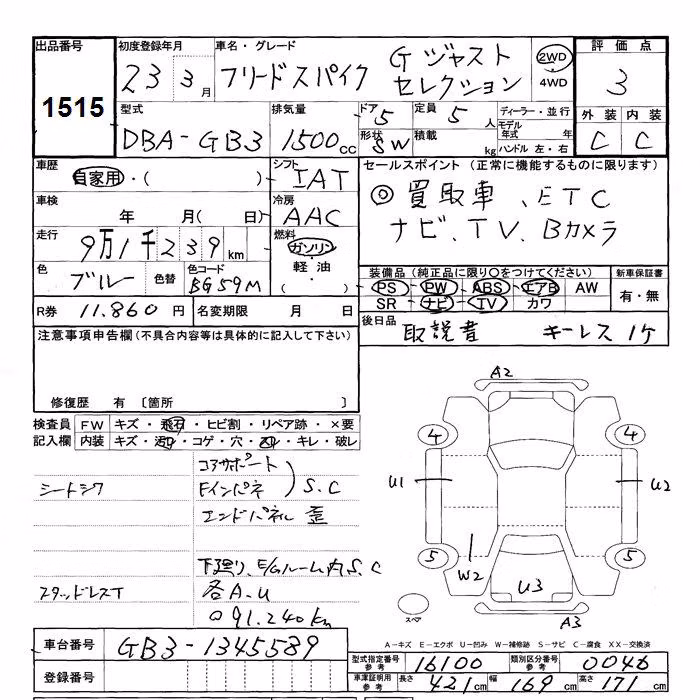 出品番号 初度登録年月 車名・グレード 評価点
1515 23 3月 フリードスパイク Gジャスト セレクション 2WD 4WD 3
型式 排気量 ドア 5 定員 5人 ディーラー・並行 外装 内装
DBA-GB3 1500cc 形状 SW 積載 kg モデル年式 年 ハンドル 左・右 C C
車歴 自家用・( ) シフト IAT セールスポイント (正常に機能するものに限ります)
車検 年 月( 日) 冷房 AAC ◎買取車、ETC
走行 9万1千239km 燃料 ガソリン・軽油・( ) ナビ、TV、Bカメラ
色 ブルー 色替 色コード BG59M
装備品 (純正品に限り○をつけてください) 新車保証書
PS PW ABS エアB AW 有・無
SR ナビ TV カワ
R券 11.860円 名変期限 月 日 後日品 取説書 キーレス1ケ
注意事項申告欄 (不具合内容等は具体的に記入して下さい)
修復歴 有 〔箇所 〕
検査員記入欄 FW キズ・飛石・ヒビ割・リペア跡・×要
内装 キズ・汚れ・コゲ・穴・凹・キレ・破レ
コアサポート
シートシワ Fインパネ S.C
エンドパネル 歪
下廻り、E/Gルーム内S.C
スタッドレスT 各A.U
91.240km
A2
4 4
U1 U2
5 5
W2 U3
スペア A3
A-キズ E-エクボ U-凹み W-補修跡 S-サビ C-腐食 XX-交換済
車台番号 GB3-1345589
型式指定番号 参考 16100 類別区分番号 参考 0046
登録番号
車庫証明用 参考 長さ 421cm 幅 169cm 高さ 171cm